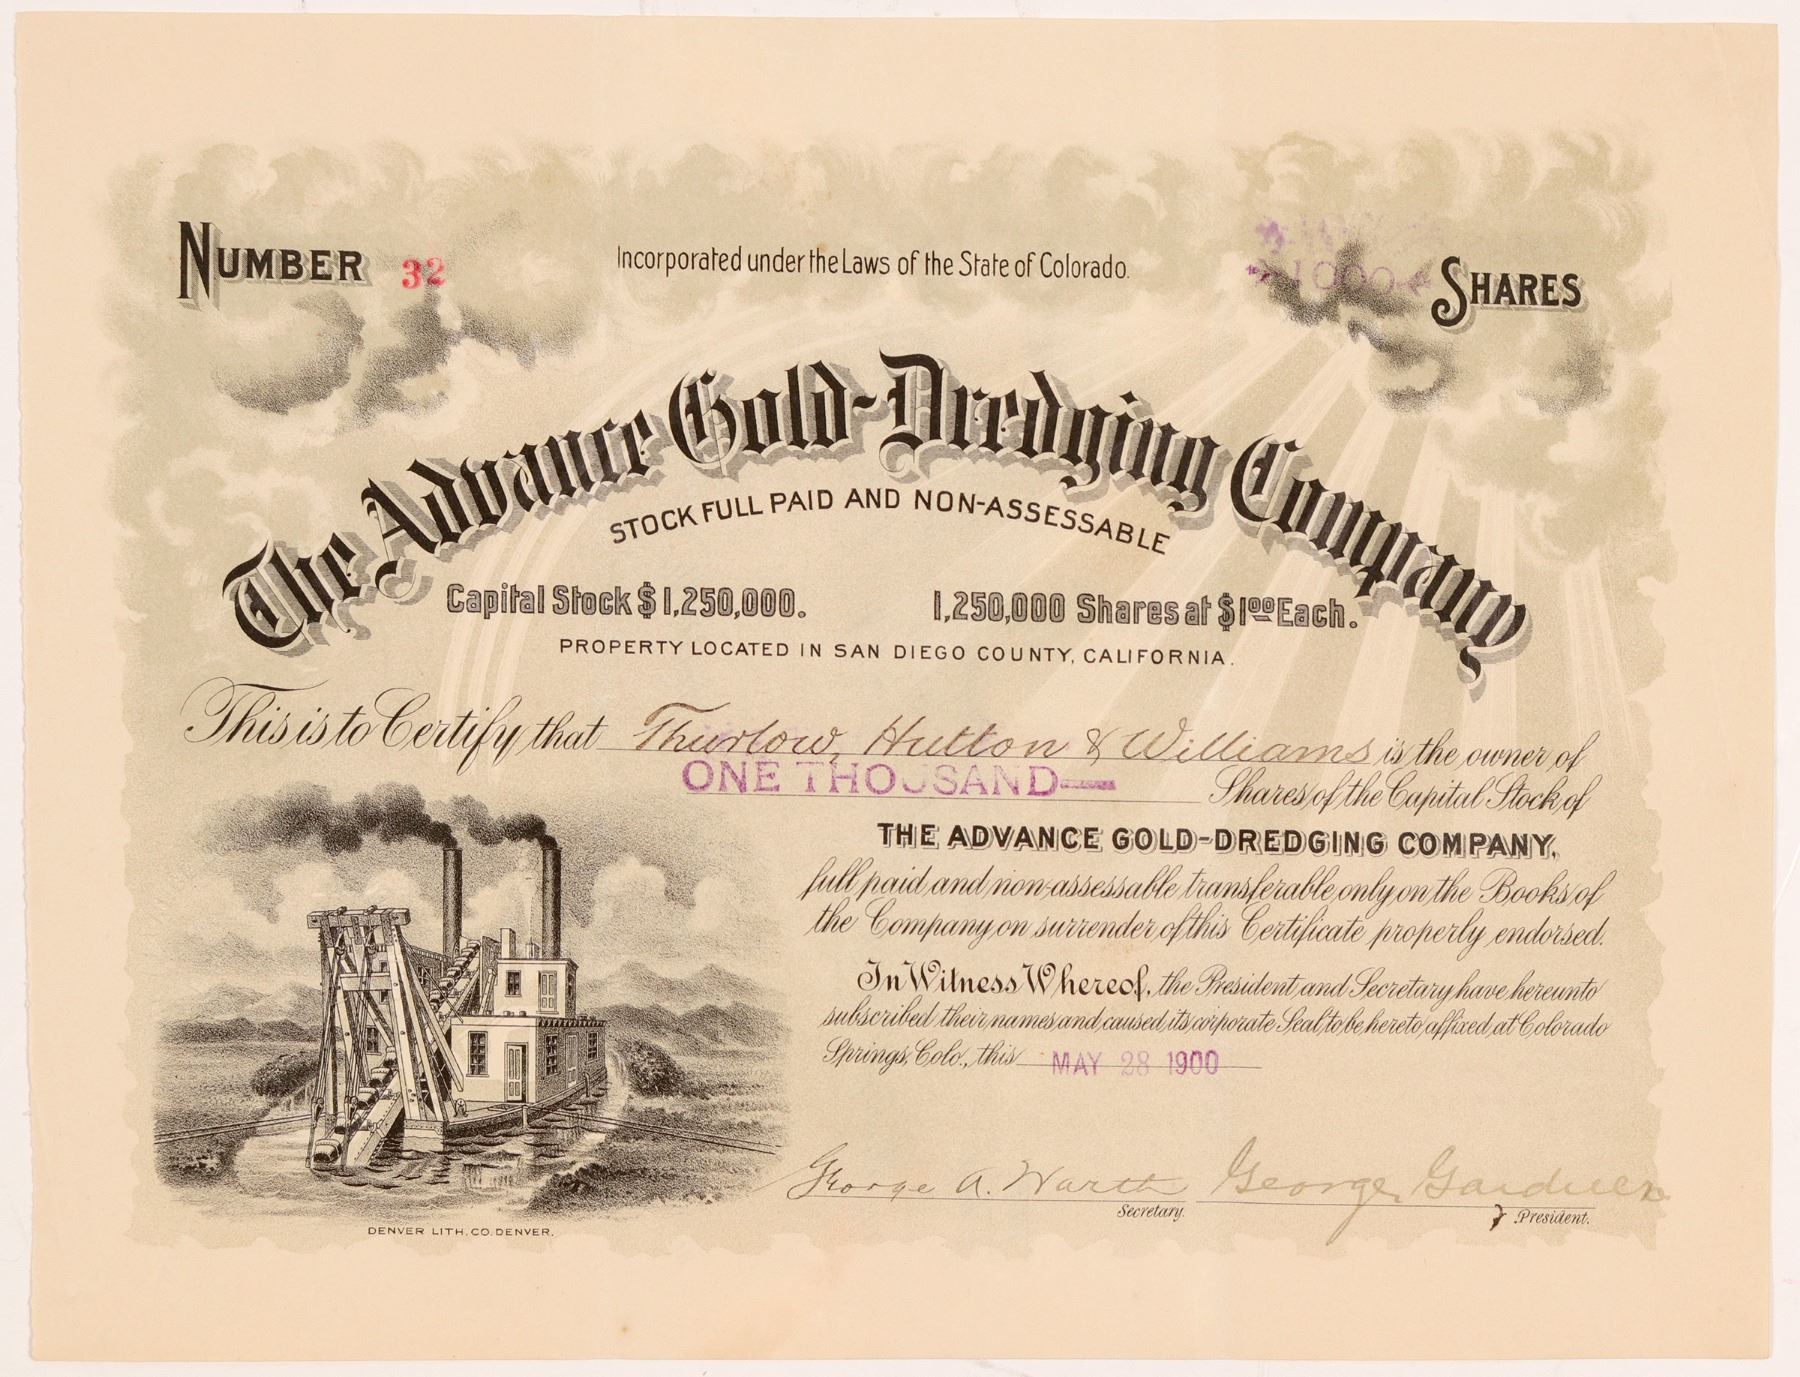 NUMBER 32
Incorporated under the Laws of the State of Colorado.
1000 SHARES
The Advance Gold-Dredging Company
STOCK FULL PAID AND NON-ASSESSABLE
Capital Stock $1,250,000. 1,250,000 Shares at $1.00 Each.
PROPERTY LOCATED IN SAN DIEGO COUNTY, CALIFORNIA.
This is to Certify that Thurlow, Hutton & Williams is the owner of
ONE THOUSAND Shares of the Capital Stock of
THE ADVANCE GOLD-DREDGING COMPANY,
full paid and non-assessable transferable only on the Books of
the Company on surrender of this Certificate properly endorsed.
In Witness Whereof, the President and Secretary have hereunto
subscribed their names and caused its corporate Seal to be hereto affixed, at Colorado
Springs, Colo., this MAY 28 1900
George A. Warth George Gardner
Secretary. President.
DENVER LITH. CO. DENVER.